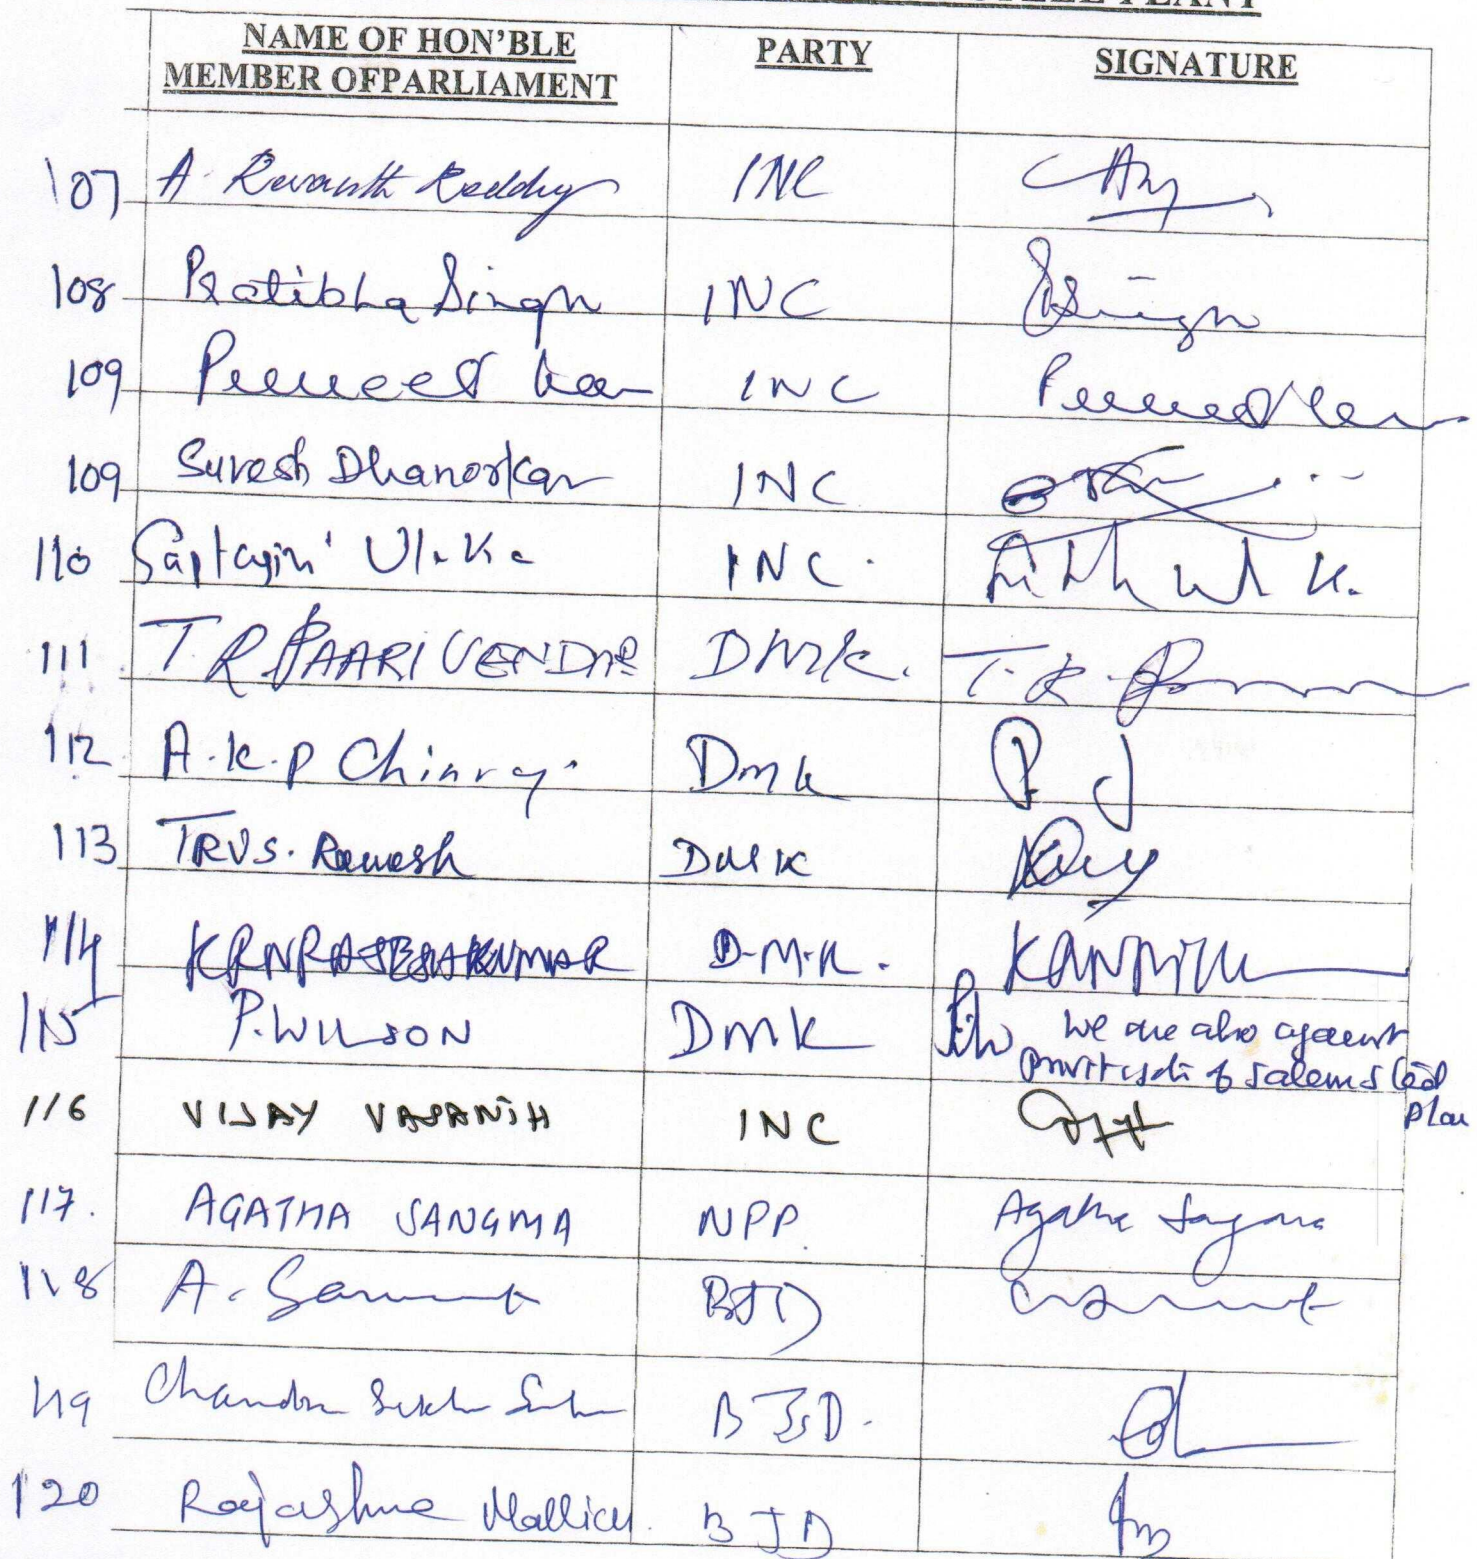 PLANT
NAME OF HON'BLE MEMBER OFPARLIAMENT PARTY SIGNATURE
107 A. Revanth Reddy INC
108 Pratibha Singh INC Singh
109 Preneet Kaur INC Preneet Kaur
109 Suresh Dhanorkar INC
110 Saptagiri Ulaka INC.
111 T R PAARIVENDAR DMK. T. R.
112 A.K.P Chinraj. Dmk
113 TRVS. Ramesh DMK
114 KRNRAJESHKUMAR D.M.K.
115 P.WILSON DMK We are also against
of Salem Steel
Plan
116 VIJAY VASANTH INC
117. AGATHA SANGMA NPP. Agatha Sangma
118 A. BJD
119 Chandra Sekhar Sahu BJD.
120 Rajashree Mallick. BJD